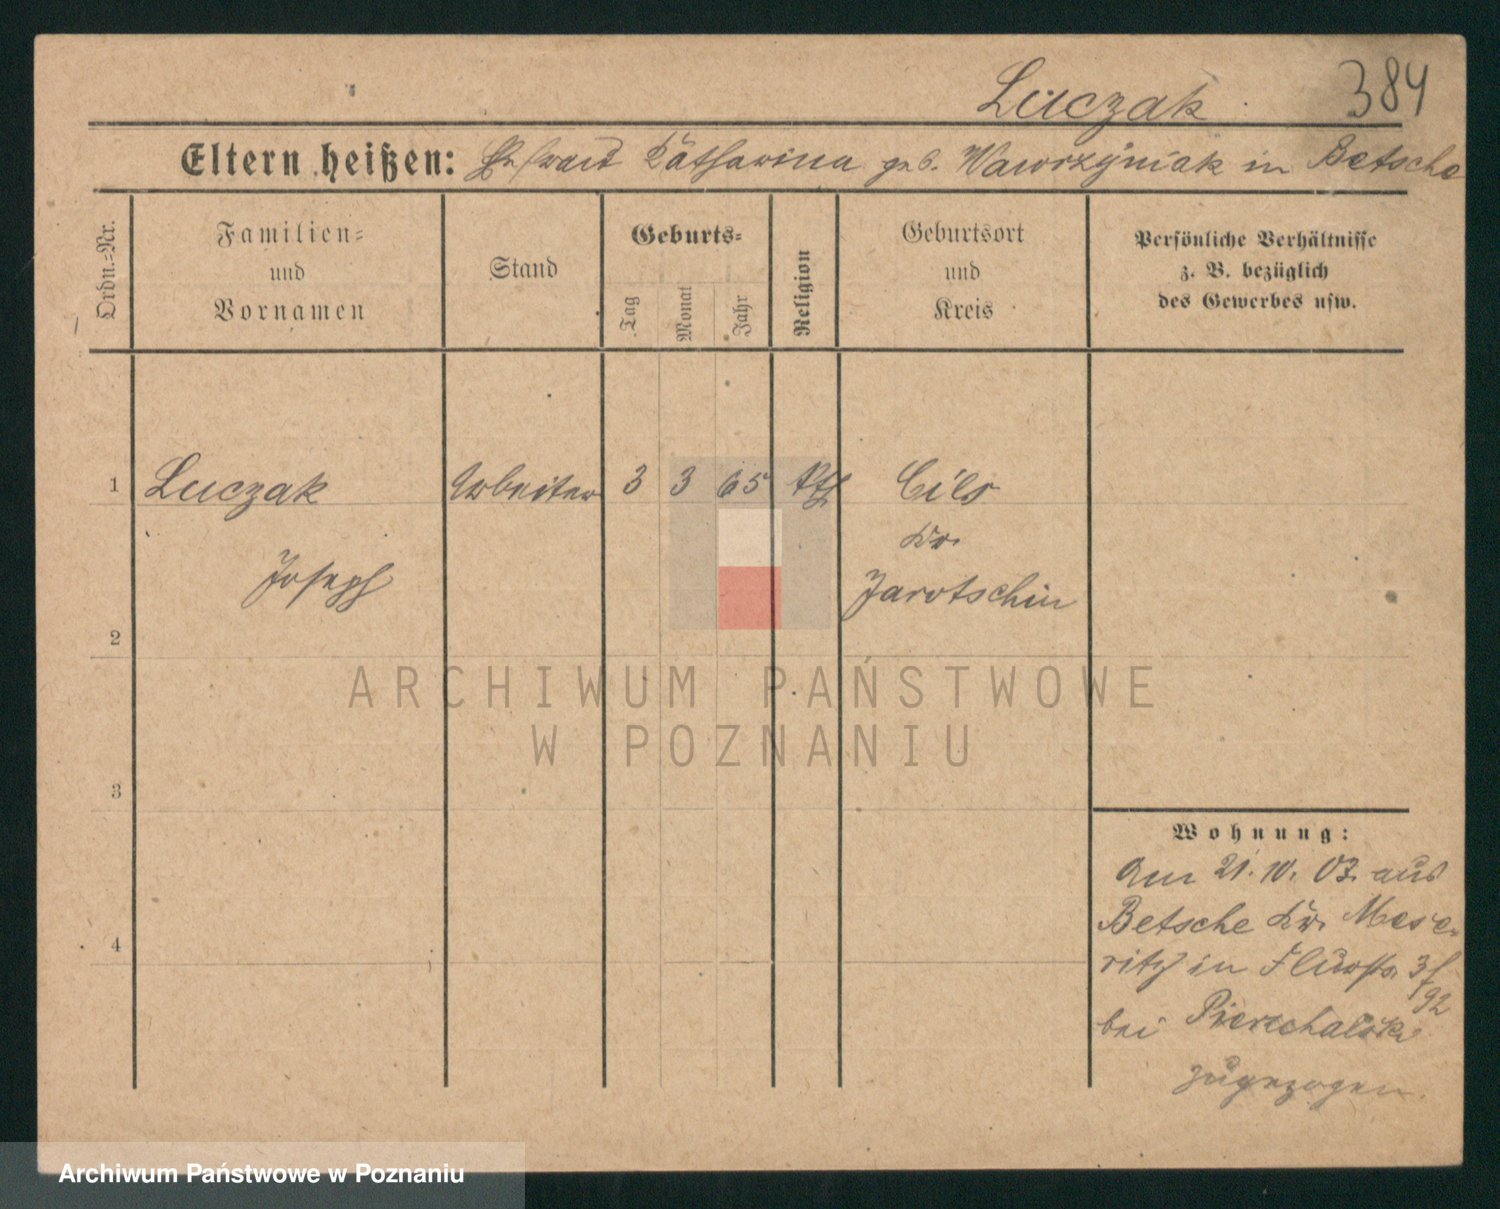 Luczak 384
Eltern heißen: Ehefrau Katharina geb. Wawrzyniak in Betsche
Ordn.-Nr.
Familien-
und
Vornamen
Stand
Geburts-
Tag
Monat
Jahr
Religion
Geburtsort
und
Kreis
Persönliche Verhältnisse
z. B. bezüglich
des Gewerbes usw.
1 Luczak Arbeiter 3 3 65 kth
Kr.
Joseph Jarotschin
2
ARCHIWUM PAŃSTWOWE
W POZNANIU
3
Wohnung:
Am 21.10.03. aus
Betsche Kr. Mese-
4
ritz in Flurstr. 3/92
bei
zugezogen.
Archiwum Państwowe w Poznaniu